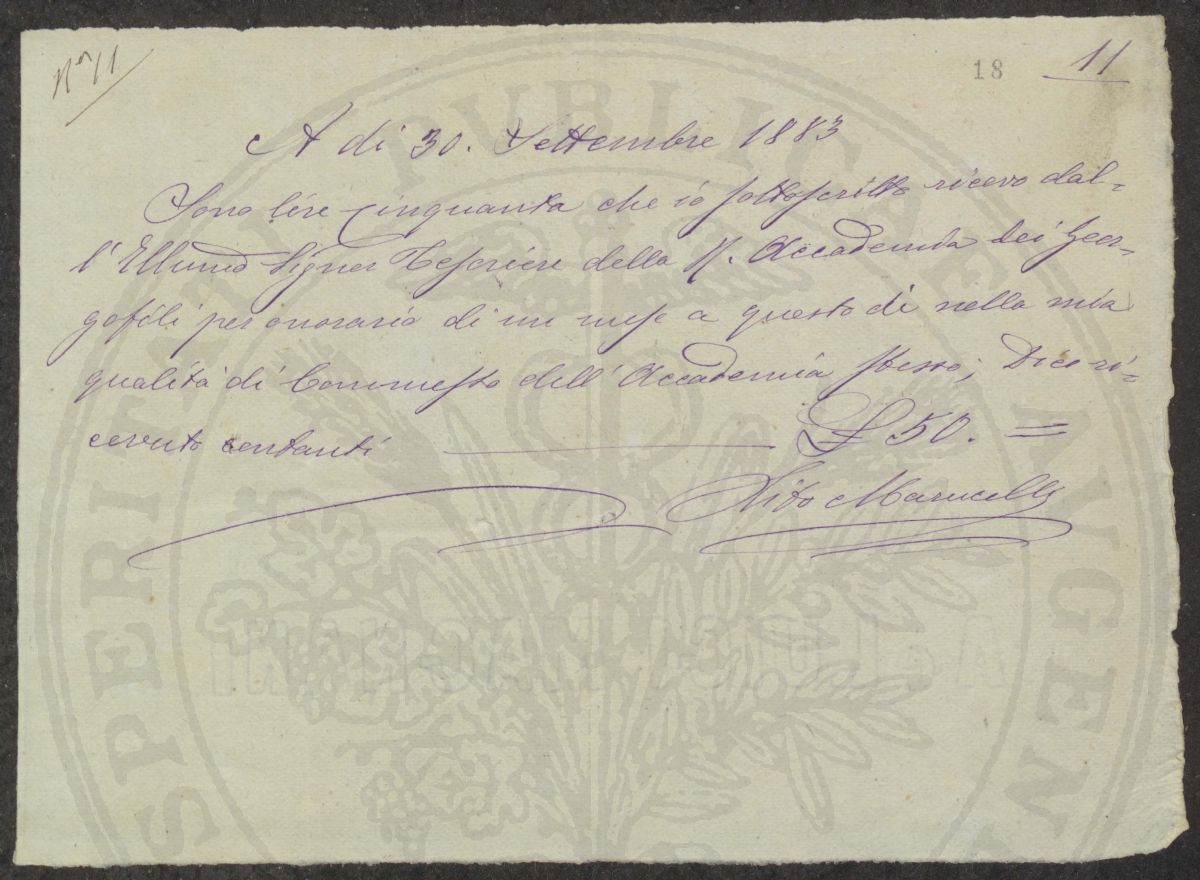 Nº 11
18 11
A di 30. Settembre 1883
Sono lire cinquanta che io sottoscritto ricevo dal=
l'Ellmo Signor Tesoriere della R. Accademia dei Geor=
gofili per onorario di un mese a questo di nella mia
qualità di Commesso dell'Accademia stessa; Dico ri=
cevuto contanti £ 50. =
Vito Marucelli
PROSPERITATI PVBLICAE AVGENDAE